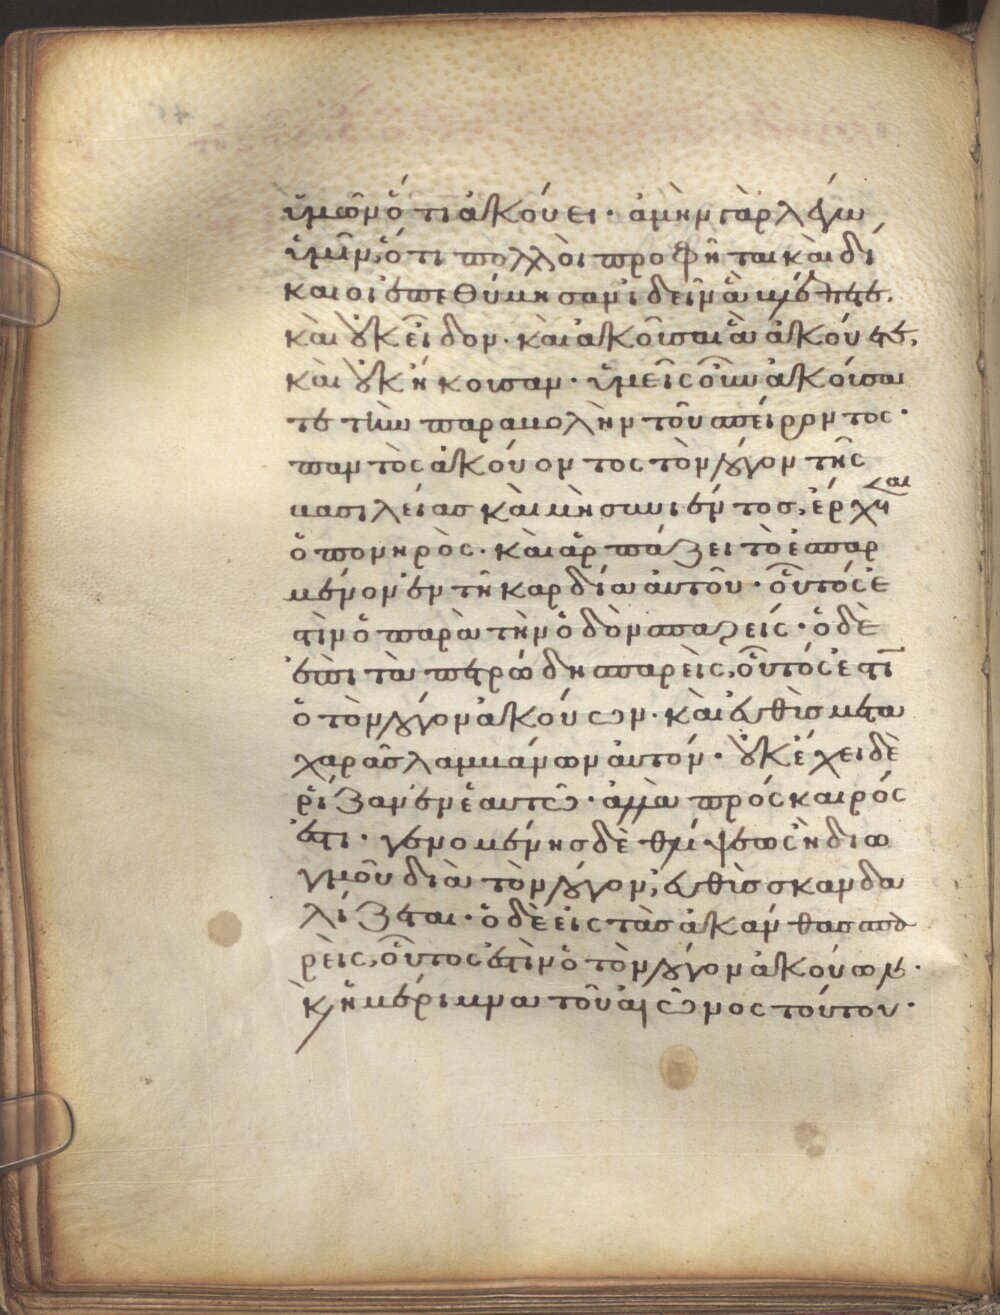 ὑμῶν ὅτι ἀκούει· ἀμὴν γὰρ λέγω
ὑμῖν, ὅτι πολλοὶ προφῆται καὶ δί
καιοι ἐπεθύμησαν ἰδεῖν ἃ βλέπετε,
καὶ οὐκ εἶδον· καὶ ἀκοῦσαι ἃ ἀκούετε,
καὶ οὐκ ἤκουσαν· ὑμεῖς οὖν ἀκούσα
τε τὴν παραβολὴν τοῦ σπείροντος·
παντὸς ἀκούοντος τὸν λόγον τῆς
βασιλείας καὶ μὴ συνιέντος, ἔρχεται
ὁ πονηρὸς· καὶ ἁρπάζει τὸ ἐσπαρ
μένον ἐν τῇ καρδία αὐτοῦ· οὗτός ἐ
στιν ὁ παρὰ τὴν ὁδὸν σπαρείς· ὁ δὲ
ἐπὶ τὰ πετρώδη σπαρεὶς, οὗτός ἐστιν
ὁ τὸν λόγον ἀκούων· καὶ εὐθὺς μετὰ
χαρᾶς λαμβάνων αὐτόν· οὐκ ἔχει δὲ
ῥίζαν ἐν ἑαυτῶ· ἀλλὰ πρόσκαιρός
ἐστι· γενομένης δὲ θλίψεως ἢ διω
γμοῦ διὰ τὸν λόγον, εὐθὺς σκανδα
λίζεται· ὁ δὲ εἰς τὰς ἀκάνθας σπα
ρεὶς, οὗτος ἐστὶν ὁ τὸν λόγον ἀκούων·
κ ἡ μέριμνα τοῦ αἰῶνος τούτου·